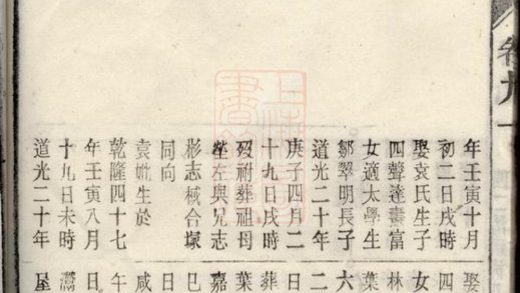 卷九
年壬寅十月
初二日戌時
娶袁氏生子
四聲達壽富
女適太學生
鄒翠明長子
道光二十年
庚子四月二
十九日戌時
歿祔葬祖母
塋左與兄志
彬志棫合塚
同向
袁妣生於
乾隆四十七
年壬寅八月
十九日未時
道光二十年
娶四
女
林
葉
六
二
日
葬
葉
嘉
巳
日
咸
午
日
屋